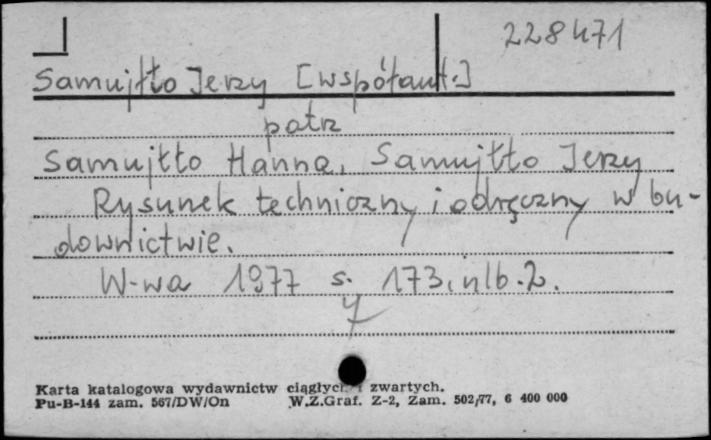 228471
Samujłło Jerzy [współaut.]
patrz
Samujłło Hanna, Samujłło Jerzy
Rysunek techniczny i odręczny w bu-
downictwie.
W-wa 1977 s. 173, nlb. 2.
Karta katalogowa wydawnictw ciągłych i zwartych.
Pu-B-144 zam. 567/DW/On W.Z.Graf. Z-2, Zam. 502/77, 6 400 000